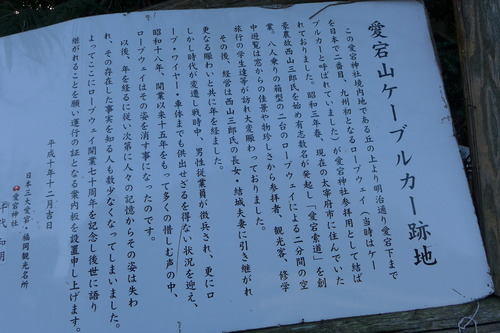 愛宕山ケーブルカー跡地
この愛宕神社境内地である丘の上より明治通り愛宕下まで
を日本で二番目、九州初となるロープウェイ(当時はケー
ブルカーと呼ばれていました)が愛宕神社参拝用として結ば
れておりました。昭和三年春、現在の太宰府市に住んでいた
豪農故西山三郎氏を始め有志数名が発起し「愛宕索道」を創
業。八人乗りの箱型の二台のロープウェイによる二分間の空
中遊覧は窓からの佳景や物珍しさから参拝者、観光客、修学
旅行の学生達等が訪れ大変賑わっておりました。
その後、経営は西山三郎氏の長女・結城夫妻に引き継がれ
更なる賑わいと共に年を経ました。
しかし時代が変遷し戦時中、男性従業員が徴兵され、更にロ
ープ・ワイヤー・車体までも供出せざるを得ない状況を迎え、
昭和十八年、開業以来十五年をもって多くの惜しむ声の中、
ロープウェイはその姿を消す事になったのです。
以後、年を経るに従い次第に人々の記憶からその姿は失わ
れ、その存在した事実を知る人も数少なくなってしまいました。
よってここにロープウェイ開業七十周年を記念し後世に語り
継がれることを願い運行の証となる案内板を設置申し上げます。
平成十年十二月吉日
日本三大愛宕・福岡観光名所
愛宕神社
千代 和明